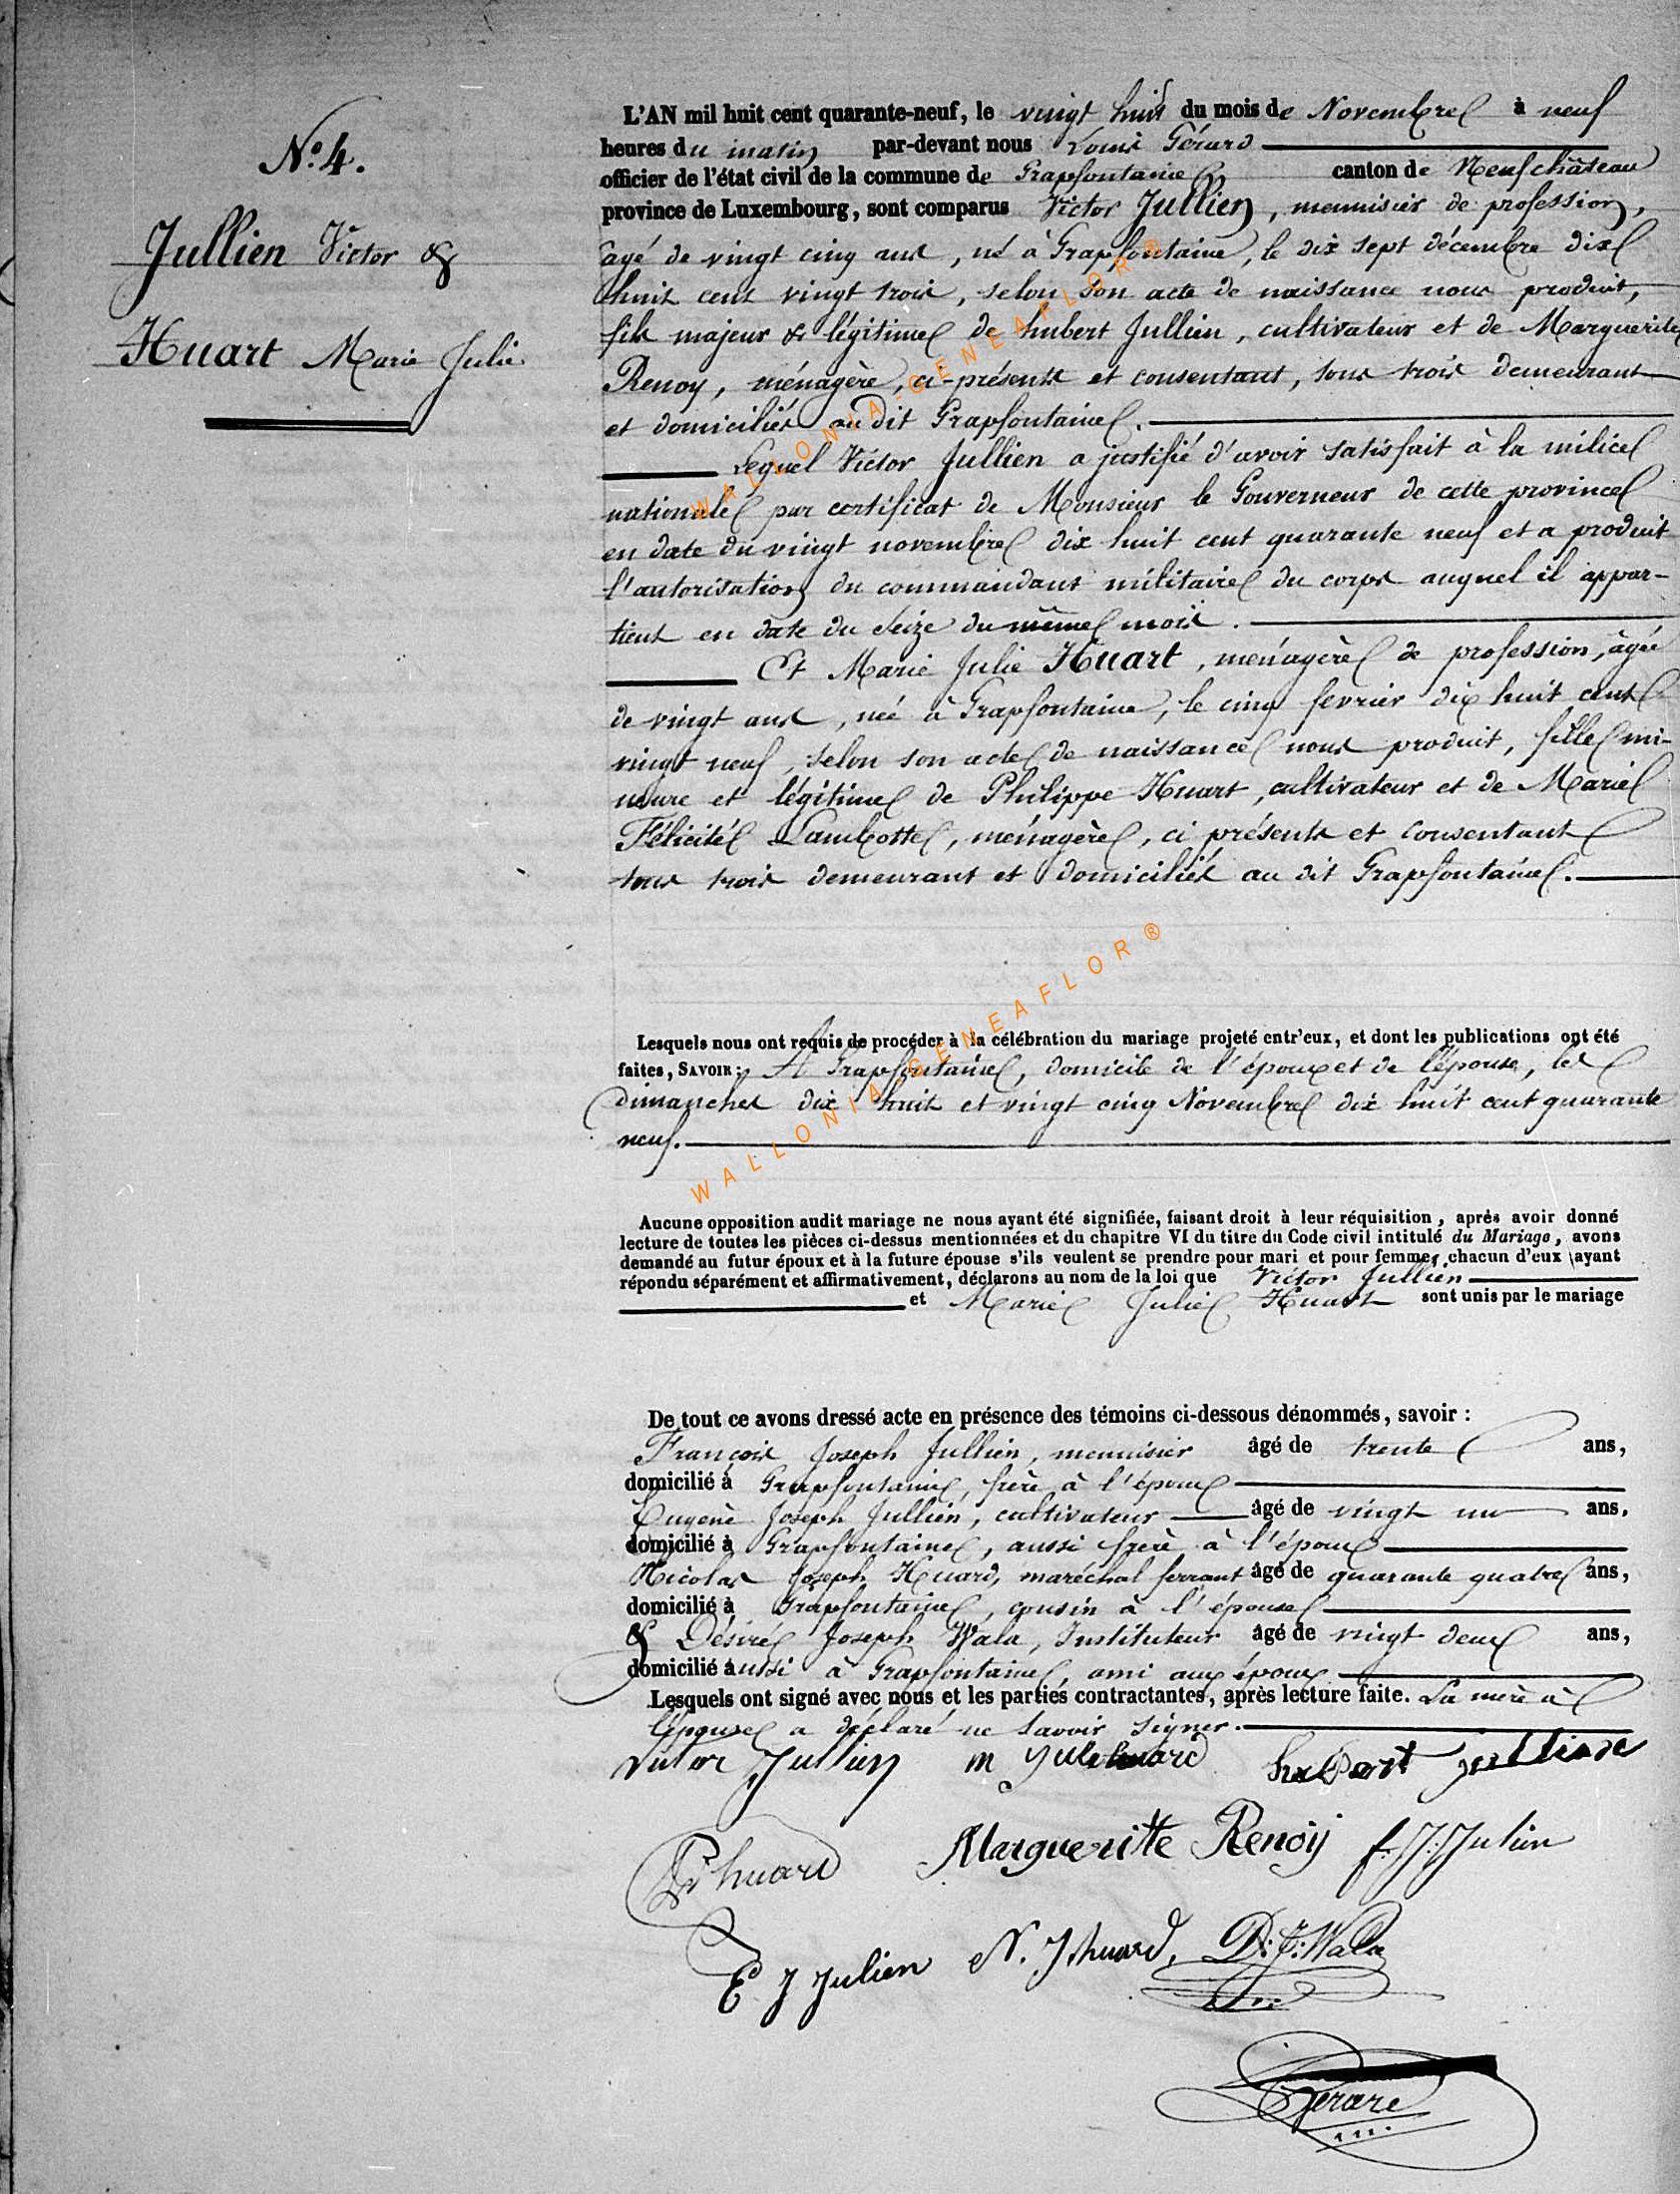 N.º 4.
Jullien Victor &
Huart Marie Julie.
L'AN mil huit cent quarante-neuf, le vingt huit du mois de Novembre à neuf
heures du matin par-devant nous Louis Gérard
officier de l'état civil de la commune de Grapfontaine canton de Neufchâteau
province de Luxembourg, sont comparus Victor Jullien, menuisier de profession,
âgé de vingt cinq ans, né à Grapfontaine, le dix sept décembre dix
huit cent vingt trois, selon son acte de naissance nous produit,
fils majeur & légitime de hubert Jullien, cultivateur et de Marguerite
Renoy, ménagère, ci-présents et consentant, tous trois demeurant
et domiciliés au dit Grapfontaine.
Lequel Victor Jullien a justifié d'avoir satisfait à la milice
nationale par certificat de Monsieur le Gouverneur de cette province
en date du vingt novembre dix huit cent quarante neuf et a produit
l'autorisation du commandant militaire du corps auquel il appar-
tient en date du seize du même mois.
Et Marie Julie Huart, ménagère de profession, âgée
de vingt ans, née à Grapfontaine, le cinq fevrier dix huit cent
vingt neuf, selon son acte de naissance nous produit, fille mi-
neure et légitime de Philippe Huart, cultivateur et de Marie
Félicité Lambotte, ménagère, ci présents et consentant
tous trois demeurant et domiciliés au dit Grapfontaine.
Lesquels nous ont requis de procéder à la célébration du mariage projeté entr'eux, et dont les publications ont été
faites, SAVOIR: A Grapfontaine, domicile de l'époux et de l'épouse, les
dimanches dix huit et vingt cinq Novembre dix huit cent quarante
neuf.
Aucune opposition audit mariage ne nous ayant été signifiée, faisant droit à leur réquisition, après avoir donné
lecture de toutes les pièces ci-dessus mentionnées et du chapitre VI du titre du Code civil intitulé du Mariage, avons
demandé au futur époux et à la future épouse s'ils veulent se prendre pour mari et pour femme, chacun d'eux ayant
répondu séparément et affirmativement, déclarons au nom de la loi que Victor Jullien
et Marie Julie Huart sont unis par le mariage
De tout ce avons dressé acte en présence des témoins ci-dessous dénommés, savoir :
François Joseph Jullien, menuisier âgé de trente ans,
domicilié à Grapfontaine, frère à l'époux
Eugène Joseph Jullien, cultivateur âgé de vingt un ans,
domicilié à Grapfontaine, aussi frère à l'époux
Nicolas Joseph Huard, maréchal ferrant âgé de quarante quatre ans,
domicilié à Grapfontaine, cousin à l'épouse
& Désiré Joseph Wala, Instituteur âgé de vingt deux ans,
domicilié aussi à Grapfontaine, ami aux époux
Lesquels ont signé avec nous et les parties contractantes, après lecture faite. La mère à
l'épouse a déclaré ne savoir signer.
Victor Jullien m Julie huard hubert jullien
Ph huard Margueritte Renoy f. J. Julien
E J Julien N. J huard, D: J: Wala
Gerard
WALLONIA-GENEAFLOR®
WALLONIA-GENEAFLOR®